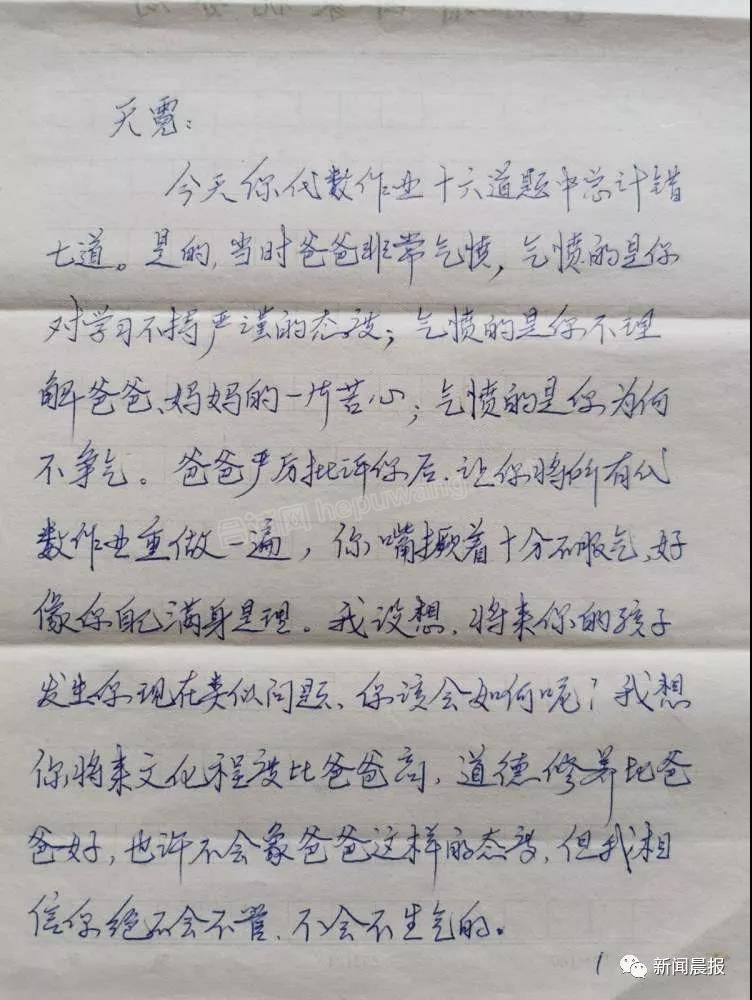 天霓：
今天你代数作业十六道题中总计错
七道。是的，当时爸爸非常气愤，气愤的是你
对学习不持严谨的态度；气愤的是你不理
解爸爸、妈妈的一片苦心；气愤的是你为何
不争气。爸爸严厉批评你后，让你将所有代
数作业重做一遍，你嘴撅着十分不服气，好
像你自己满身是理。我设想，将来你的孩子
发生你现在类似问题，你该会如何呢？我想
你将来文化程度比爸爸高，道德修养比爸
爸好，也许不会象爸爸这样的态度，但我相
信你绝不会不管，不会不生气的。
1
合浦网 hepuwang
新闻晨报